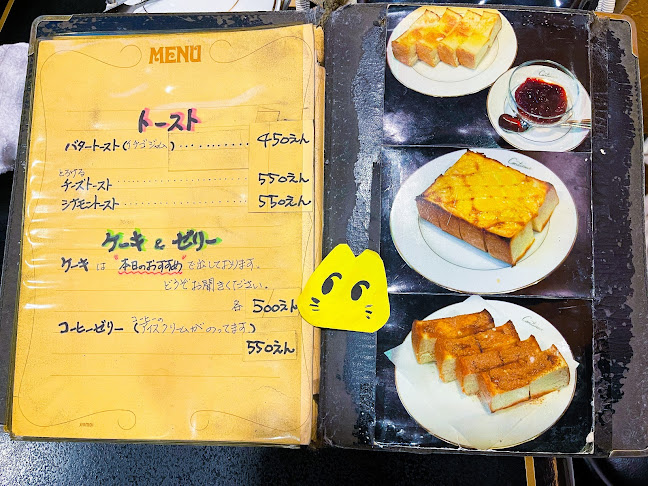 MENU
トースト
バタートースト(イチゴジャム)・・・・・・・・・・450えん
とろける
チーズトースト・・・・・・・・・・・・・・550えん
シナモントースト・・・・・・・・・・・・・550えん
ケーキ & ゼリー
ケーキ は "本日のおすすめ" を出しております。
どうぞお聞きください。
各 500えん
コーヒーゼリー (コーヒーの
アイスクリームがのってます)
550えん